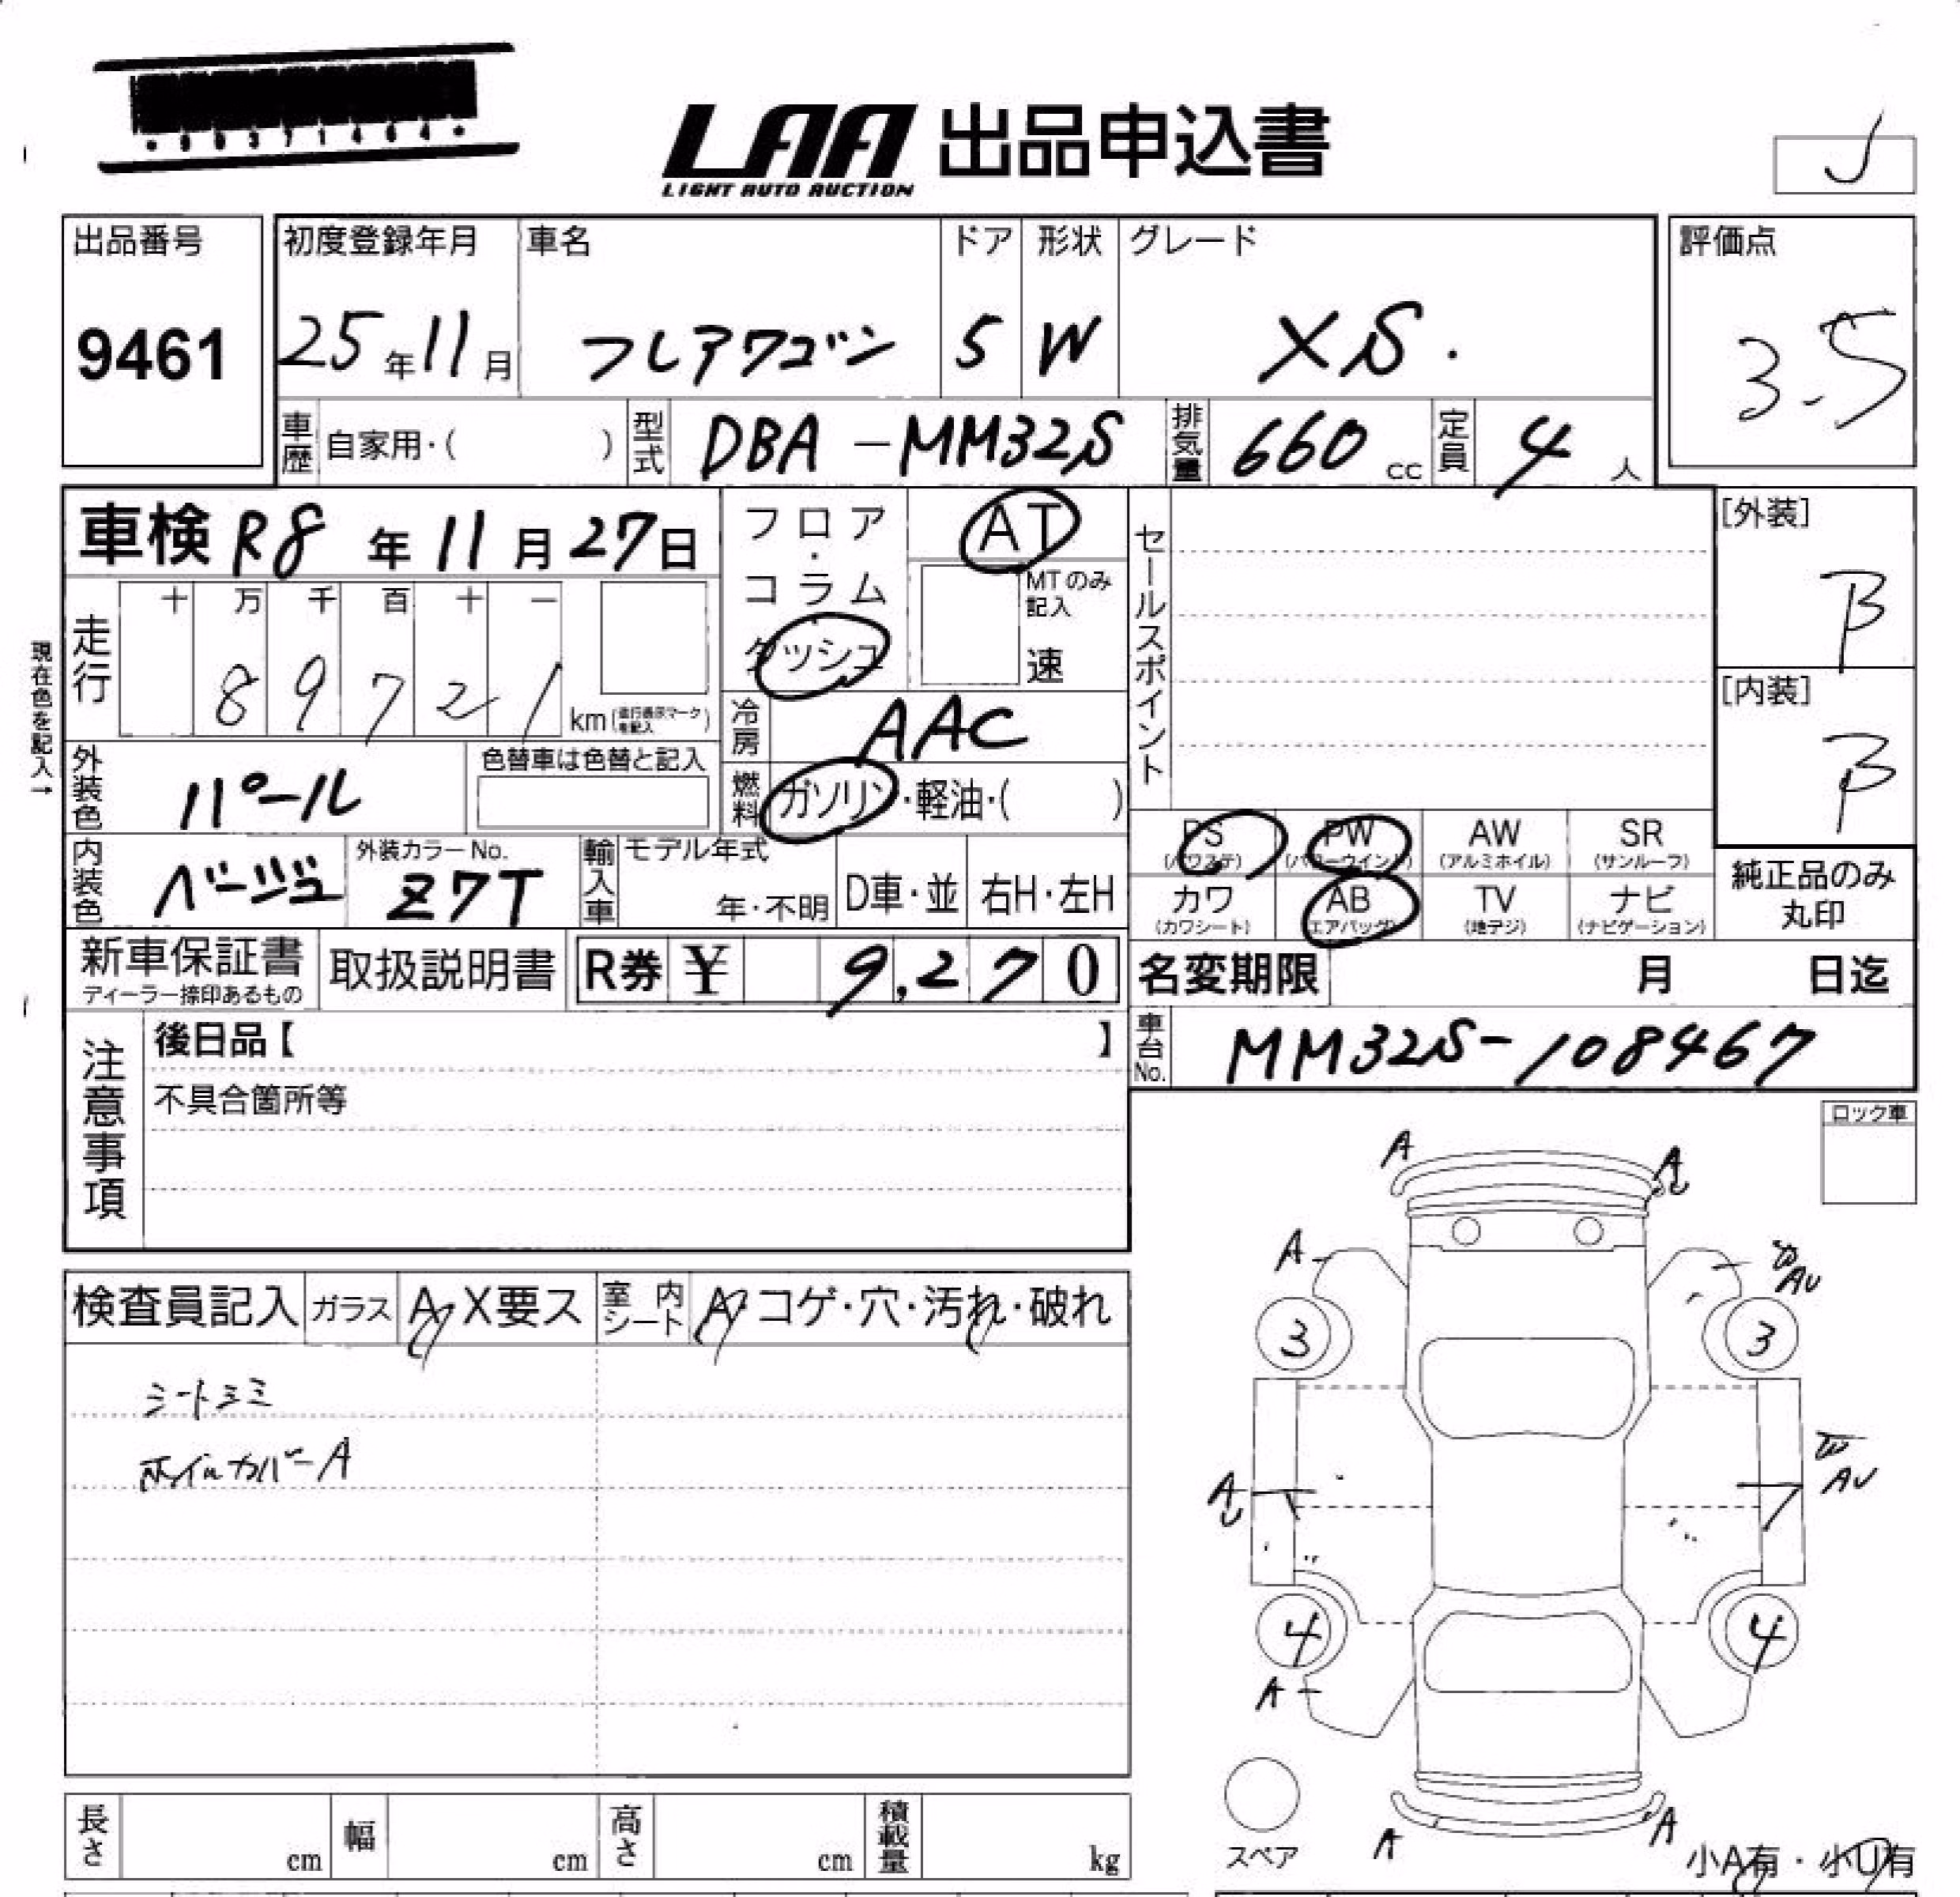 LAA 出品申込書
LIGHT AUTO AUCTION
出品番号 初度登録年月 車名 ドア 形状 グレード 評価点
9461 25年11月 フレアワゴン 5 W XS. 3.5
車歴 自家用・( ) 型式 DBA-MM32S 排気量 660cc 定員 4人
車検 R8年11月27日
フロア・コラム・ダッシュ
AT
MTのみ記入
速
セールスポイント
[外装]
B
現在色を記入→
走行 十 万 千 百 十 一
8 9 7 2 1 km(走行表示マークを記入)
冷房 AAC
[内装]
B
外装色 パール 色替車は色替と記入
燃料 ガソリン・軽油・( )
PS (パワステ) PW (パワーウインド) AW (アルミホイル) SR (サンルーフ)
内装色 ベージュ 外装カラーNo. Z7T 輸入車 モデル年式 年・不明 D車・並 右H・左H
カワ (カワシート) AB (エアバッグ) TV (地デジ) ナビ (ナビゲーション)
純正品のみ丸印
新車保証書 ディーラー捺印あるもの 取扱説明書 R券 ¥ 9,270
名変期限 月 日迄
車台No. MM32S-108467
注意事項
後日品【 】
不具合箇所等
ロック車
A A
A U
A
W
AU
3 3
検査員記入 ガラス A X要ス 室内シート A コゲ・穴・汚れ・破れ
シートシミ
ホイルカバーA
A
U
W
AU
4 4
A
A A
スペア
小A有・小U有
長さ cm 幅 cm 高さ cm 積載量 kg